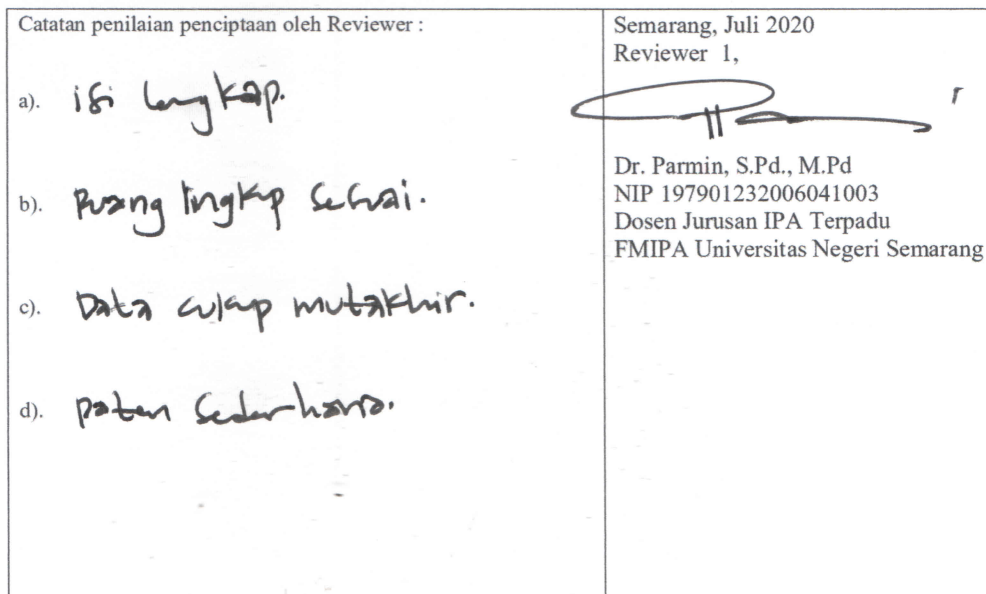 Catatan penilaian penciptaan oleh Reviewer :
a). isi lengkap.
b). Ruang lingkup sesuai.
c). Data cukup mutakhir.
d). paten sederhana.
Semarang, Juli 2020
Reviewer 1,
Dr. Parmin, S.Pd., M.Pd
NIP 197901232006041003
Dosen Jurusan IPA Terpadu
FMIPA Universitas Negeri Semarang